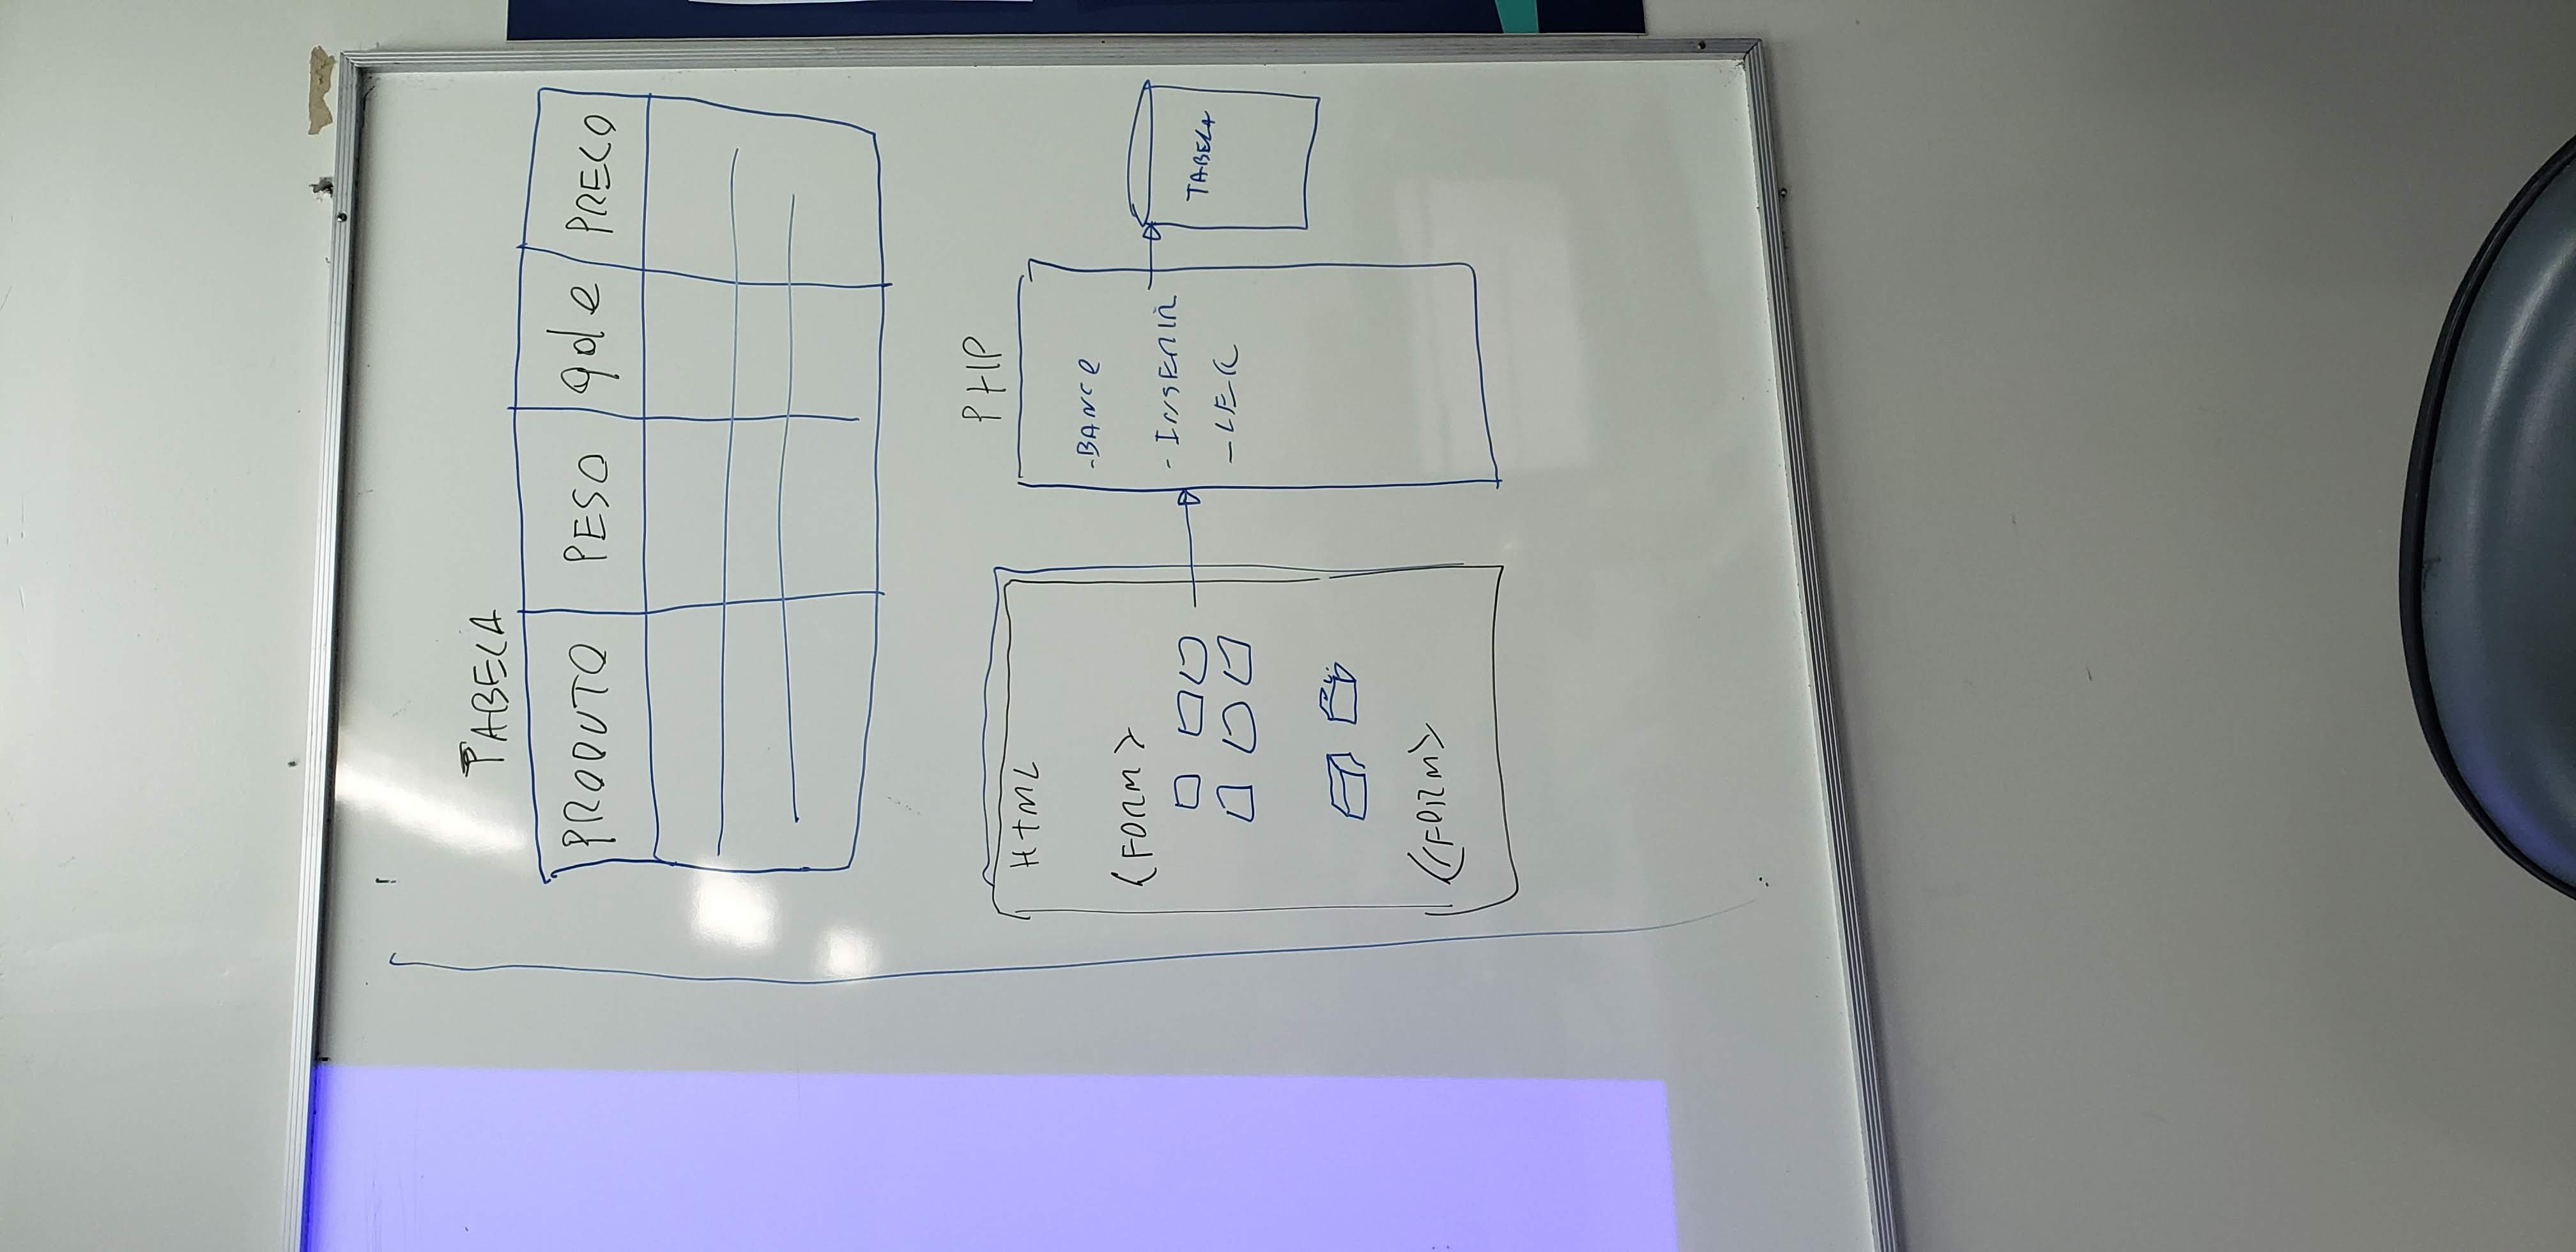 TABELA
PRODUTO PESO qde PRECO
HTML
<FORM>
</FORM>
PHP
-BANCO
-INSERIR
-LER
TABELA